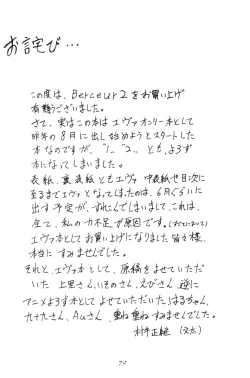 お詫び…
この度は、Berceur2をお買い上げ
有難うございました。
さて、実はこの本はエヴァオンリー本として
昨年の8月に出し始めようとスタートした
本なのですが、"1"、"2"、とも、よろず
本になってしまいました。
表紙、裏表紙ともエヴァ 中表紙や目次に
至るまでエヴァとなってしまったのは、6月ぐらいに
出す予定が、ずれこんでしまいまして、これは、
全て、私の力不足が原因です。
エヴァ本としてお買い上げになりました皆々様、
本当に すみませんでした。
それと、エヴァ本として、原稿をよせていただ
いた 上里さん、いそのさん、えびさん、逆に
アニメよろず本としてよせていただいた、はるちゃん、
九十九さん、Auさん、重ね重ねすみませんでした。
村牛正雄
70